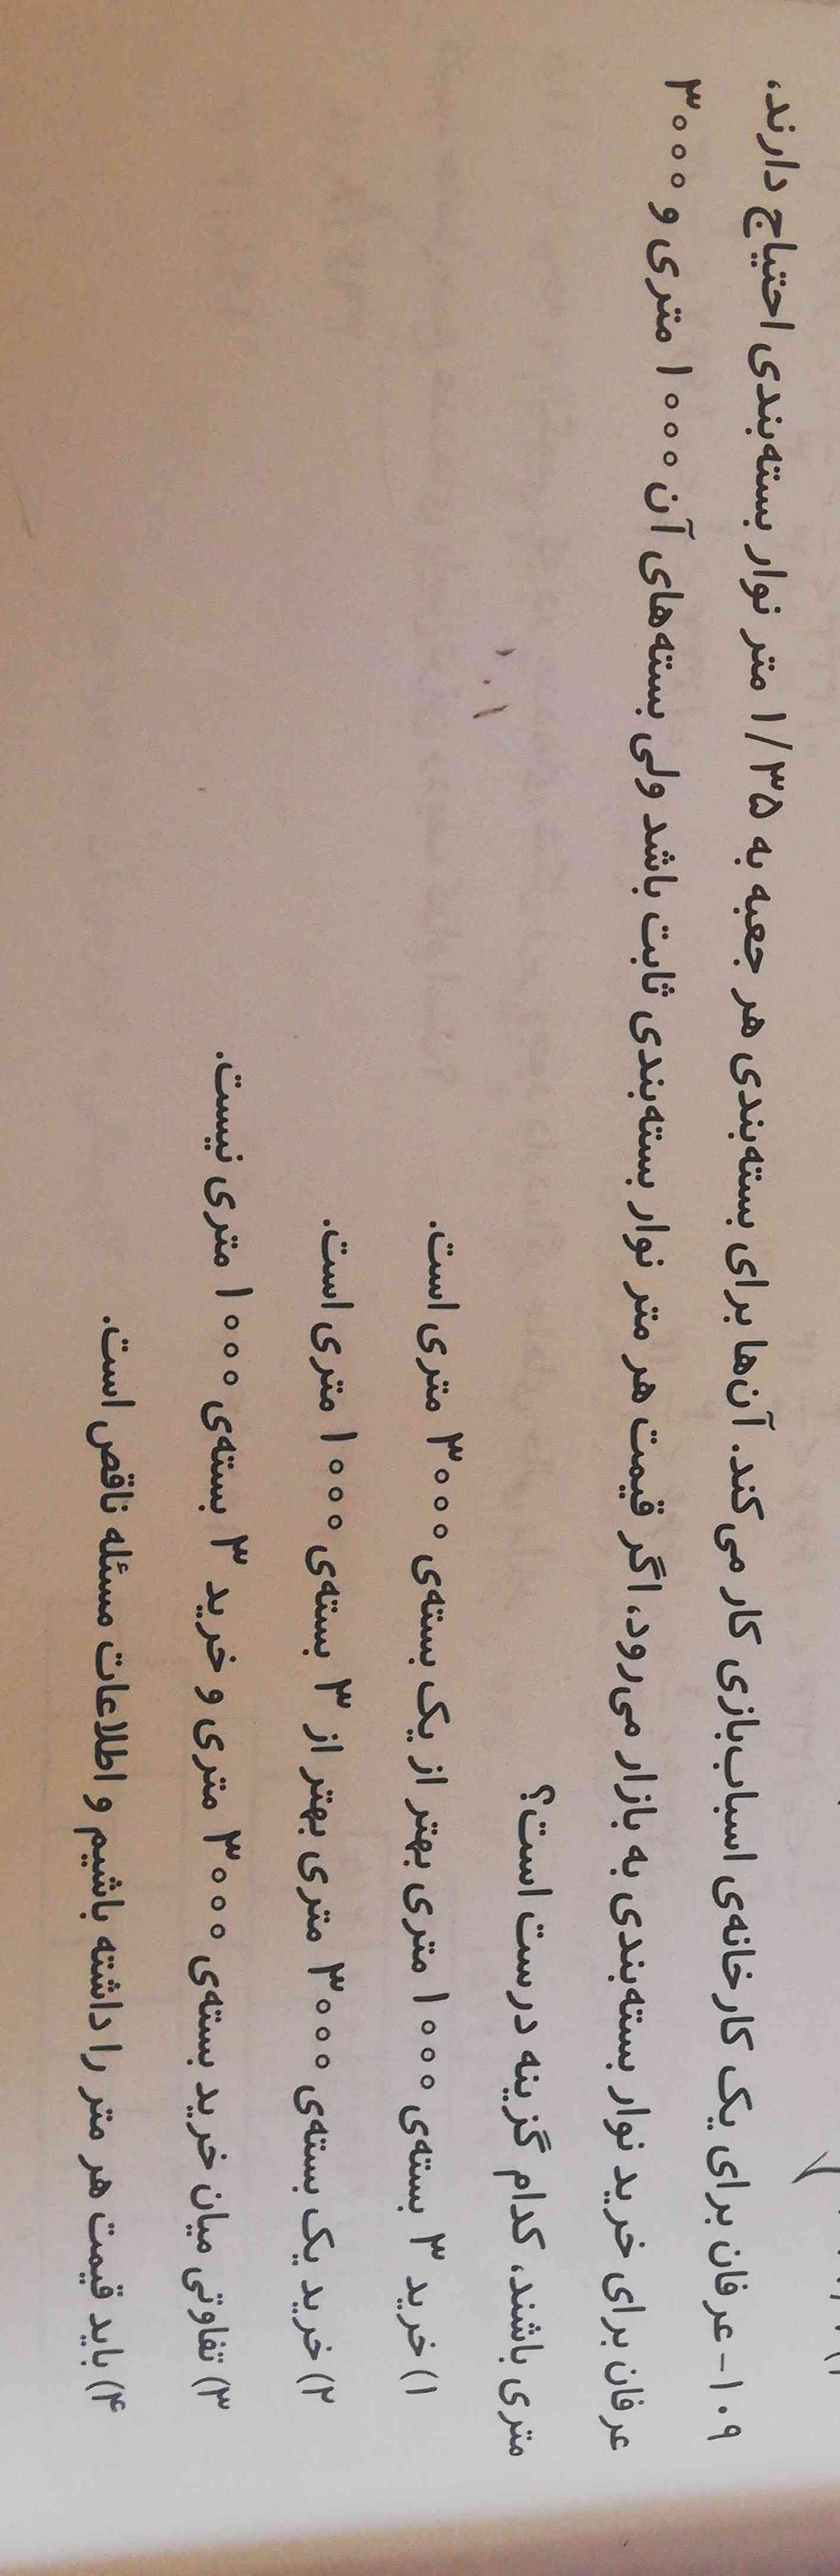 ۱۰۹- عرفان برای یک کارخانه‌ی اسباب‌بازی کار می‌کند. آن‌ها برای بسته‌بندی هر جعبه به ۱/۳۵ متر نوار بسته‌بندی احتیاج دارند،
عرفان برای خرید نوار بسته‌بندی به بازار می‌رود، اگر قیمت هر متر نوار بسته‌بندی ثابت باشد ولی بسته‌های آن ۱۰۰۰ متری و ۳۰۰۰
متری باشند، کدام گزینه درست است؟
۱) خرید ۳ بسته‌ی ۱۰۰۰ متری بهتر از یک بسته‌ی ۳۰۰۰ متری است.
۲) خرید یک بسته‌ی ۳۰۰۰ متری بهتر از ۳ بسته‌ی ۱۰۰۰ متری است.
۳) تفاوتی میان خرید بسته‌ی ۳۰۰۰ متری و خرید ۳ بسته‌ی ۱۰۰۰ متری نیست.
۴) باید قیمت هر متر را داشته باشیم و اطلاعات مسئله ناقص است.